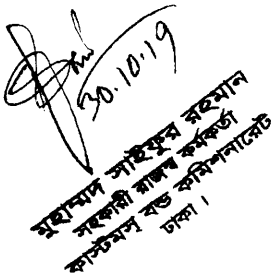 30.10.19
মুহাম্মদ সাইফুর রহমান
সহকারী রাজস্ব কর্মকর্তা
কাস্টমস বন্ড কমিশনারেট
ঢাকা।